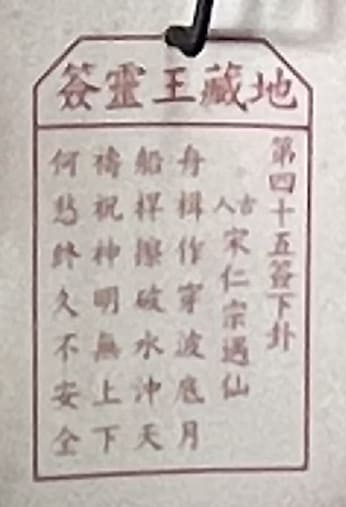 地藏王靈簽
第四十五簽下卦
古人 宋仁宗遇仙
舟楫作穿波底月
船桿擦破水沖天
禱祝神明無上下
何愁終久不安全